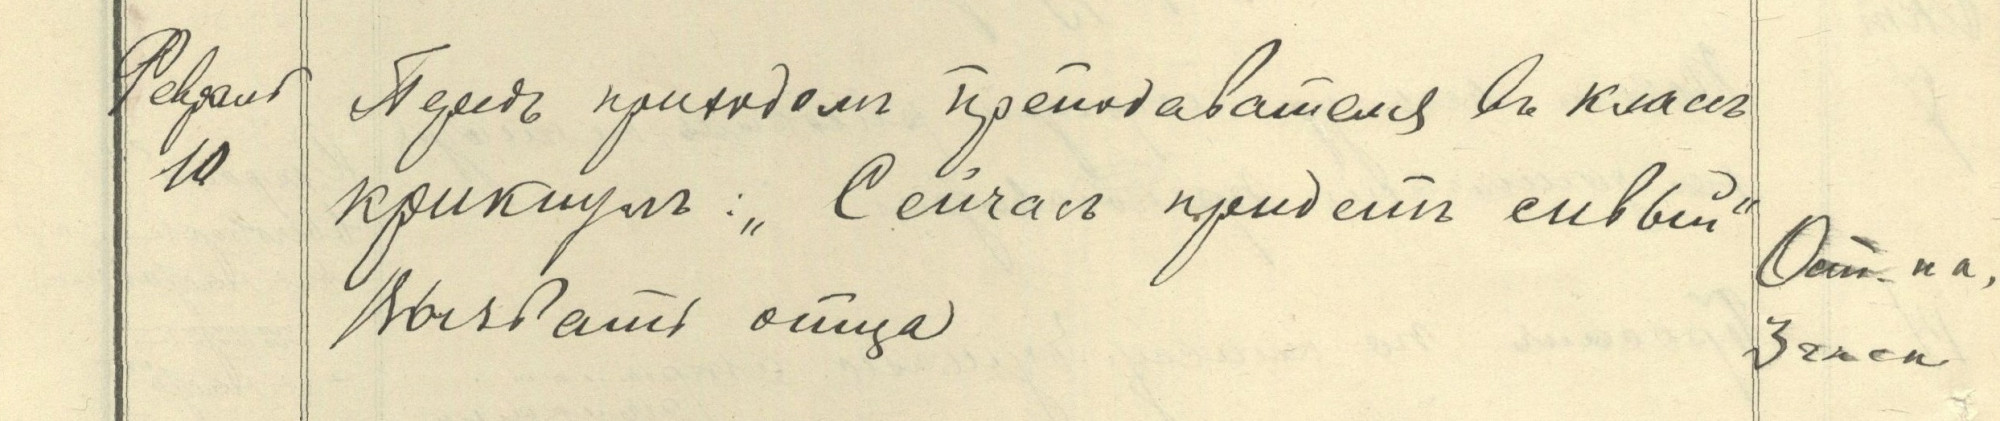 Февраль
10
Передъ приходомъ преподавателя въ классъ
крикнулъ: „Сейчасъ придетъ сивый“
Вызвать отца
Ост. на